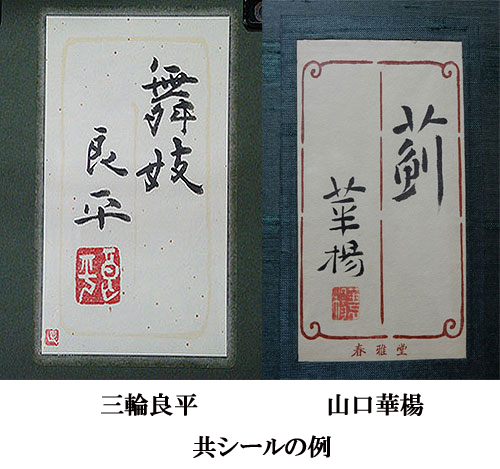 舞妓
良平
良平
薊
華楊
春雅堂
三輪良平
山口華楊
共シールの例